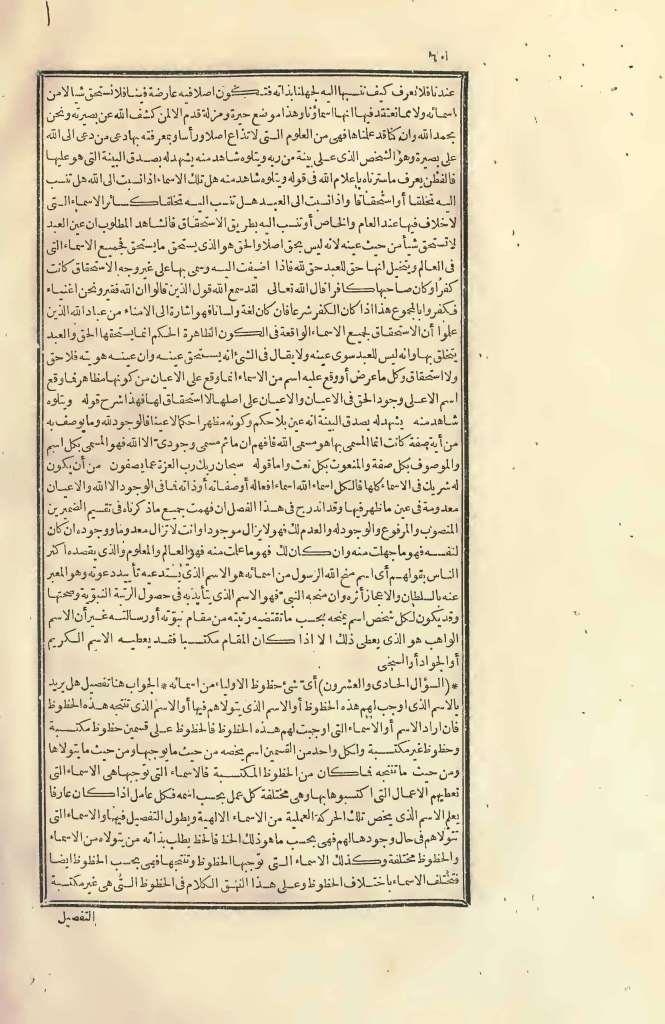 ٦٠١
عندنا فلا نعرف كيف ننسبها اليه لجهلنا بذاته فتكون اصلا فيه عارضة فينا فلا نستحق شيأ لا من
اسمائه ولا مما نعتقد فيها انها اسماؤنا وهذا موضع حيرة ومزلة قدم الا لمن كشف الله عن بصيرته ونحن
بحمد الله وان كنا قد علمناها فهى من العلوم التى لا تذاع اصلا ورأسا وبمعرفته بها دعى من دعى الى الله
على بصيرة وهو الشخص الذى على بينة من ربه ويتلوه شاهد منه يشهد له بصدق البينة التى هو عليها
فالفطن يعرف ما سترناه باعلام الله فى قوله ويتلوه شاهد منه هل تلك الاسماء اذا نسبت الى الله هل تنسب
اليه تخلقا أو استحقاقا واذا نسبت الى العبد هل تنسب اليه تخلقا كسائر الاسماء التى
لا خلاف فيها عند العام والخاص أو تنسب اليه بطريق الاستحقاق فالشاهد المطلوب ان عين العبد
لا تستحق شيأ من حيث عينه لانه ليس بحق اصلا والحق هو الذى يستحق ما يستحق فجميع الاسماء التى
فى العالم ويتخيل انها حق للعبد حق لله فاذا اضيفت اليه وسمى بها على غير وجه الاستحقاق كانت
كفرا وكان صاحبها كافرا قال الله تعالى لقد سمع الله قول الذين قالوا ان الله فقير ونحن اغنياء
فكفروا بالمجموع هذا اذا كان الكفر شرعا فان كان لغة ولسانا فهو اشارة الى الامناء من عباد الله الذين
علموا أن الاستحقاق لجميع الاسماء الواقعة فى الكون الظاهرة الحكم انما يستحقها الحق والعبد
يتخلق بها وانه ليس للعبد سوى عينه ولا يقال فى الشئ انه يستحق عينه وان عينه هويته فلا حق
ولا استحقاق وكل ما عرض أو وقع عليه اسم من الاسماء انما وقع على الاعيان من كونها مظاهر فما وقع
اسم الا على وجود الحق فى الاعيان والاعيان على اصلها لا استحقاق لها فهذا شرح قوله ويتلوه
شاهد منه يشهد له بصدق البينة انه عين بلا حكم وكونه مظهرا حكما لا عينا فالوجود لله وما يوصف به
من أية صفة كانت انما المسمى بها هو مسمى الله فافهم ان ما ثم مسمى وجودى الا الله فهو المسمى بكل اسم
والموصوف بكل صفة والمنعوت بكل نعت واما قوله سبحان ربك رب العزة عما يصفون من أن يكون
له شريك فى الاسماء كلها فالكل اسماء الله اسماء افعاله أو صفاته أو ذاته فما فى الوجود الا الله والاعيان
معدومة فى عين ما ظهر فيها وقد اندرج فى هذا الفصل ان فهمت جميع ما ذكرناه فى تقسيم الضميرين
المنصوب والمرفوع والوجود له والعدم لك فهو لا يزال موجودا وانت لا تزال معدوما ووجوده ان كان
لنفسه فهو ما جهلت منه وان كان لك فهو ما علمت منه فهو العالم والمعلوم والذى يقصده اكثر
الناس بقولهم أى اسم منح الله الرسول من اسمائه هو الاسم الذى يستدعيه تأييد دعوته وهو المعبر
عنه بالسلطان والاعجاز أثره وان منحه النبى فهو الاسم الذى يتأيد به فى حصول الرتبة النبوية وصحتها
وقد يكون لكل شخص اسم يمنحه بحسب ما تقتضيه رتبته من مقام نبوته أو رسالته غير أن الاسم
الواهب هو الذى يعطى ذلك الا اذا كان المقام مكتسبا فقد يعطيه الاسم الكريم
أو الجواد أو السخى
* (السؤال الحادى والعشرون) أى شئ حظوظ الاولياء من اسمائه * الجواب هنا تفصيل هل يريد
بالاسم الذى اوجب لهم هذه الحظوظ أو الاسم الذى يتولاهم فيها أو الاسم الذى تنتجه هذه الحظوظ
فان اراد الاسم أو الاسماء التى اوجبت لهم هذه الحظوظ فالحظوظ على قسمين حظوظ مكتسبة
وحظوظ غير مكتسبة ولكل واحد من القسمين اسم يخصه من حيث ما يوجبها ومن حيث ما يتولاها
ومن حيث ما تنتجه فما كان من الحظوظ المكتسبة فالاسماء التى توجبها هى الاسماء التى
تعطيهم الاعمال التى اكتسبوها بها وهى مختلفة كل عمل بحسب اسمه فكل عامل اذا كان عارفا
يعلم الاسم الذى يخص تلك الحركة العملية من الاسماء الالهية ويطول التفصيل فيها والاسماء التى
تتولاهم فى حال وجودها لهم فهى بحسب ما هو ذلك الحظ فالحظ يطلب بذاته من يتولاه من الاسماء
والحظوظ مختلفة وكذلك الاسماء التى توجبها الحظوظ وتنتجها فهى بحسب الحظوظ ايضا
فتختلف الاسماء باختلاف الحظوظ وعلى هذا النسق الكلام فى الحظوظ التى هى غير مكتسبة
التفصيل